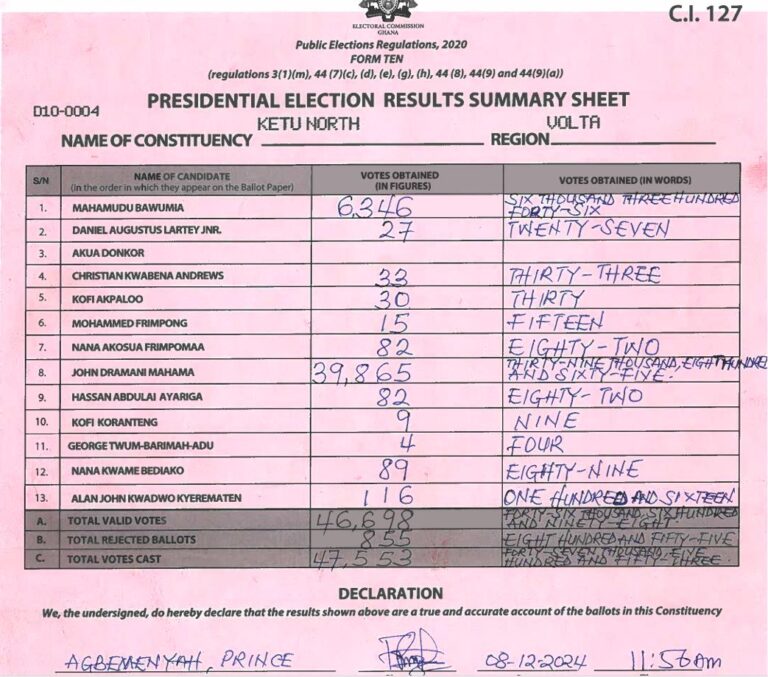 C.I. 127
ELECTORAL COMMISSION
GHANA
Public Elections Regulations, 2020
FORM TEN
(regulations 3(1)(m), 44 (7)(c), (d), (e), (g), (h), 44 (8), 44(9) and 44(9)(a))
PRESIDENTIAL ELECTION RESULTS SUMMARY SHEET
D10-0004
NAME OF CONSTITUENCY KETU NORTH REGION VOLTA
S/N NAME OF CANDIDATE (in the order in which they appear on the Ballot Paper) VOTES OBTAINED (IN FIGURES) VOTES OBTAINED (IN WORDS)
1. MAHAMUDU BAWUMIA 6,346 SIX THOUSAND THREE HUNDRED FORTY-SIX
2. DANIEL AUGUSTUS LARTEY JNR. 27 TWENTY-SEVEN
3. AKUA DONKOR
4. CHRISTIAN KWABENA ANDREWS 33 THIRTY-THREE
5. KOFI AKPALOO 30 THIRTY
6. MOHAMMED FRIMPONG 15 FIFTEEN
7. NANA AKOSUA FRIMPOMAA 82 EIGHTY-TWO
8. JOHN DRAMANI MAHAMA 39,865 THIRTY-NINE THOUSAND, EIGHT HUNDRED AND SIXTY-FIVE.
9. HASSAN ABDULAI AYARIGA 82 EIGHTY-TWO
10. KOFI KORANTENG 9 NINE
11. GEORGE TWUM-BARIMAH-ADU 4 FOUR
12. NANA KWAME BEDIAKO 89 EIGHTY-NINE
13. ALAN JOHN KWADWO KYEREMATEN 116 ONE HUNDRED AND SIXTEEN
A. TOTAL VALID VOTES 46,698 FORTY-SIX THOUSAND, SIX HUNDRED AND NINETY-EIGHT.
B. TOTAL REJECTED BALLOTS 855 EIGHT HUNDRED AND FIFTY-FIVE
C. TOTAL VOTES CAST 47,553 FORTY-SEVEN THOUSAND, FIVE HUNDRED AND FIFTY-THREE.
DECLARATION
We, the undersigned, do hereby declare that the results shown above are a true and accurate account of the ballots in this Constituency
AGBEMENYAH, PRINCE 08-12-2024 11:50am